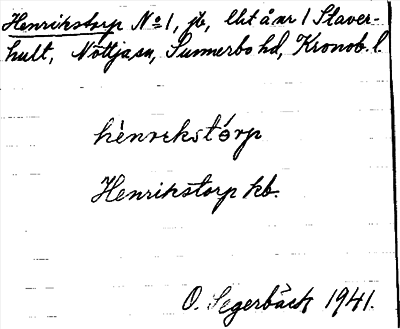 Henrikstorp No 1, jb, 
hult, Nöttja sn, Sunnerbo hd, Kronob. l.
hènrekstórp
Henrikstorp kb.
O. Segerbäck 1941.